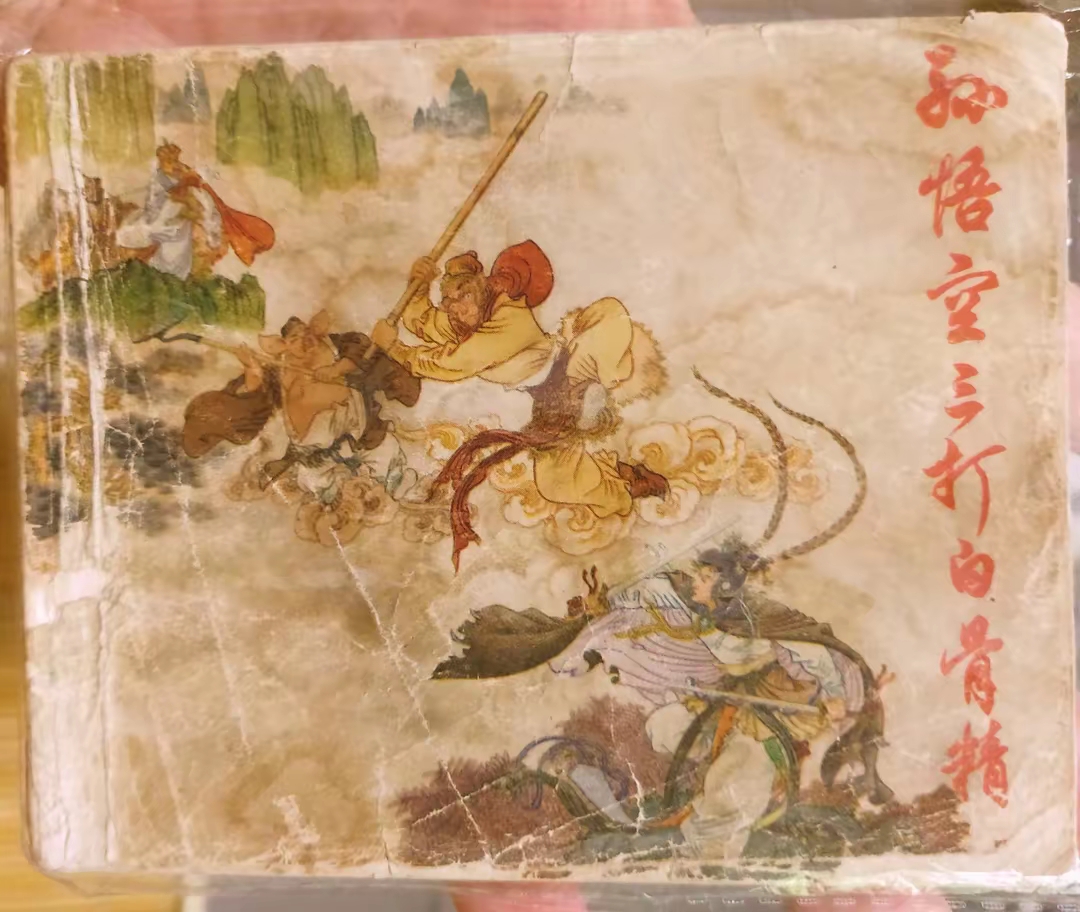 孙悟空三打白骨精